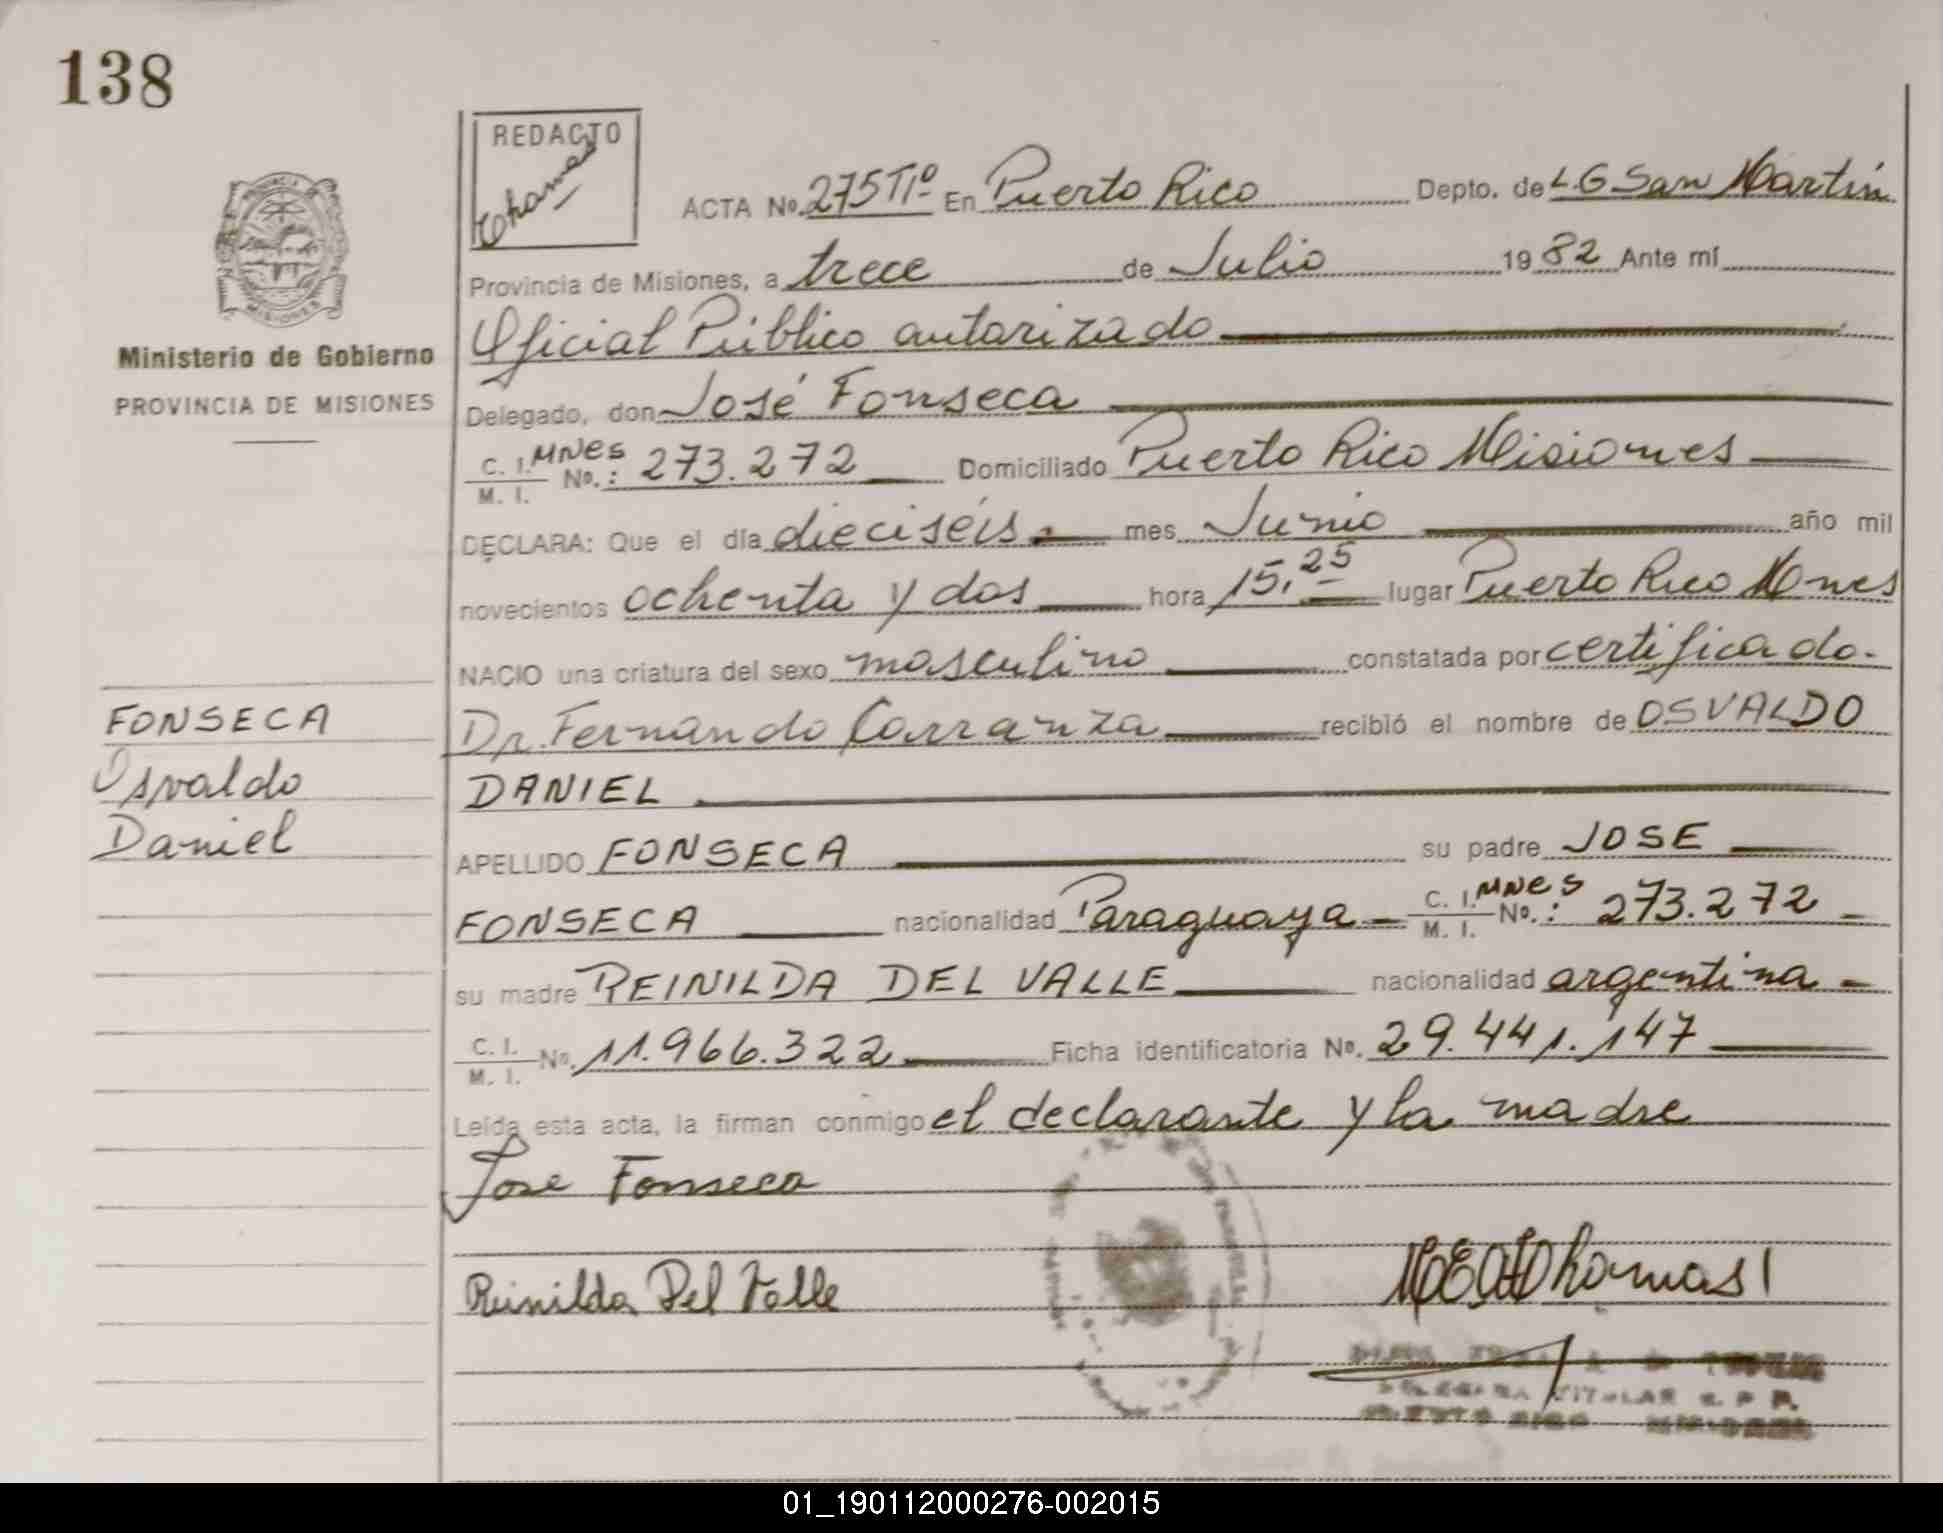 138
REDACTO
Thomas
ACTA No. 275 Tº En Puerto Rico Depto. de L.G San Martín
Provincia de Misiones, a trece de Julio 1982 Ante mí
Oficial Público autorizado
Ministerio de Gobierno
PROVINCIA DE MISIONES
Delegado, don José Fonseca
C. I. M. I. MNES No.: 273.272 Domiciliado Puerto Rico Misiones
DECLARA: Que el día dieciséis mes Junio año mil
novecientos ochenta y dos hora 15,25 lugar Puerto Rico Mnes
NACIO una criatura del sexo masculino constatada por certificado.
Dr. Fernando Carranza recibió el nombre de OSVALDO
DANIEL
FONSECA
Osvaldo
Daniel
APELLIDO FONSECA su padre JOSE
FONSECA nacionalidad Paraguaya C. I. M. I. MNES No.: 273.272
su madre REINILDA DEL VALLE nacionalidad argentina
C. I. M. I. No. 11.966.322 Ficha identificatoria No. 29.441.147
Leída esta acta, la firman conmigo el declarante y la madre
Jose Fonseca
Reinilda Del Valle
TITULAR
PUERTO RICO MISIONES
01_190112000276-002015